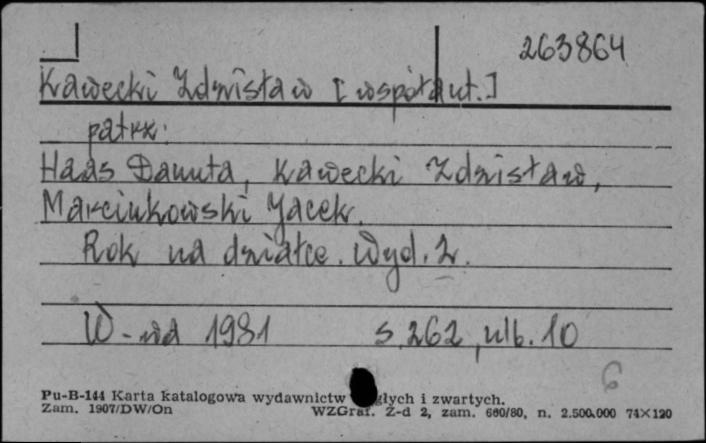 263864
Kawecki Zdzisław [współaut.]
patrz:
Haas Danuta, Kawecki Zdzisław,
Marcinkowski Jacek.
Rok na działce. Wyd. 2.
W-wa 1981 s. 262, nlb. 10
6
Pu-B-144 Karta katalogowa wydawnictw głych i zwartych.
Zam. 1907/DW/On WZGraf. Z-d 2, zam. 660/80, n. 2.500.000 74×120